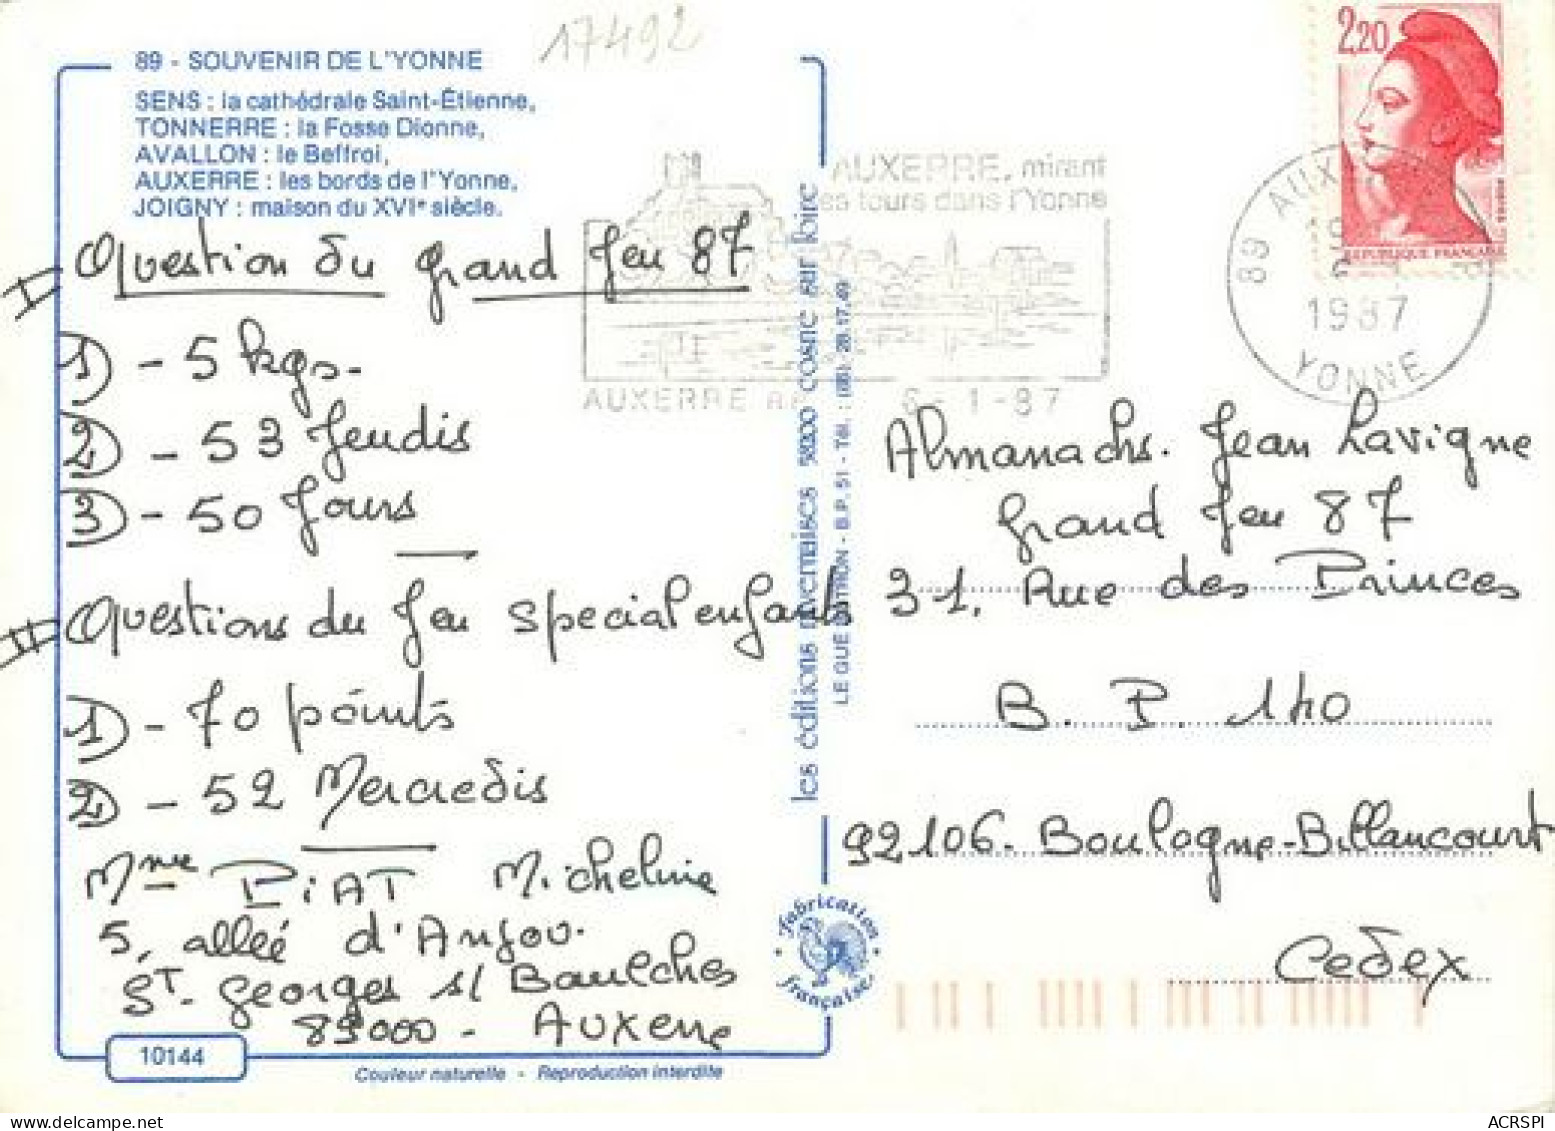 17492
89 - SOUVENIR DE L'YONNE
SENS : la cathédrale Saint-Étienne,
TONNERRE : la Fosse Dionne,
AVALLON : le Beffroi,
AUXERRE : les bords de l'Yonne,
JOIGNY : maison du XVIe siècle.
I Question du grand Jeu 87
1) - 5 kgs.
2) - 53 Jeudis
3) - 50 Jours
II Questions du Jeu special enfants
1) - 70 points
2) - 52 Mercredis
Mme PIAT Micheline
5, allée d'Anjou.
St. Georges s/ Baulches
89000 - Auxerre
10144
Couleur naturelle - Reproduction interdite
les éditions nivernaises 58200 cosne sur loire
B.P. 51 - Tél. : (86) 28.17.49
fabrication française
AUXERRE, mirant
ses tours dans l'Yonne
AUXERRE R.P. 6-1-87
2,20
REPUBLIQUE FRANÇAISE
89 AUXERRE
1987
YONNE
Almanachs. Jean Lavigne
Grand Jeu 87
31, Rue des Princes
B. P. 140
92106. Boulogne-Billancourt
Cedex
ACRSPI